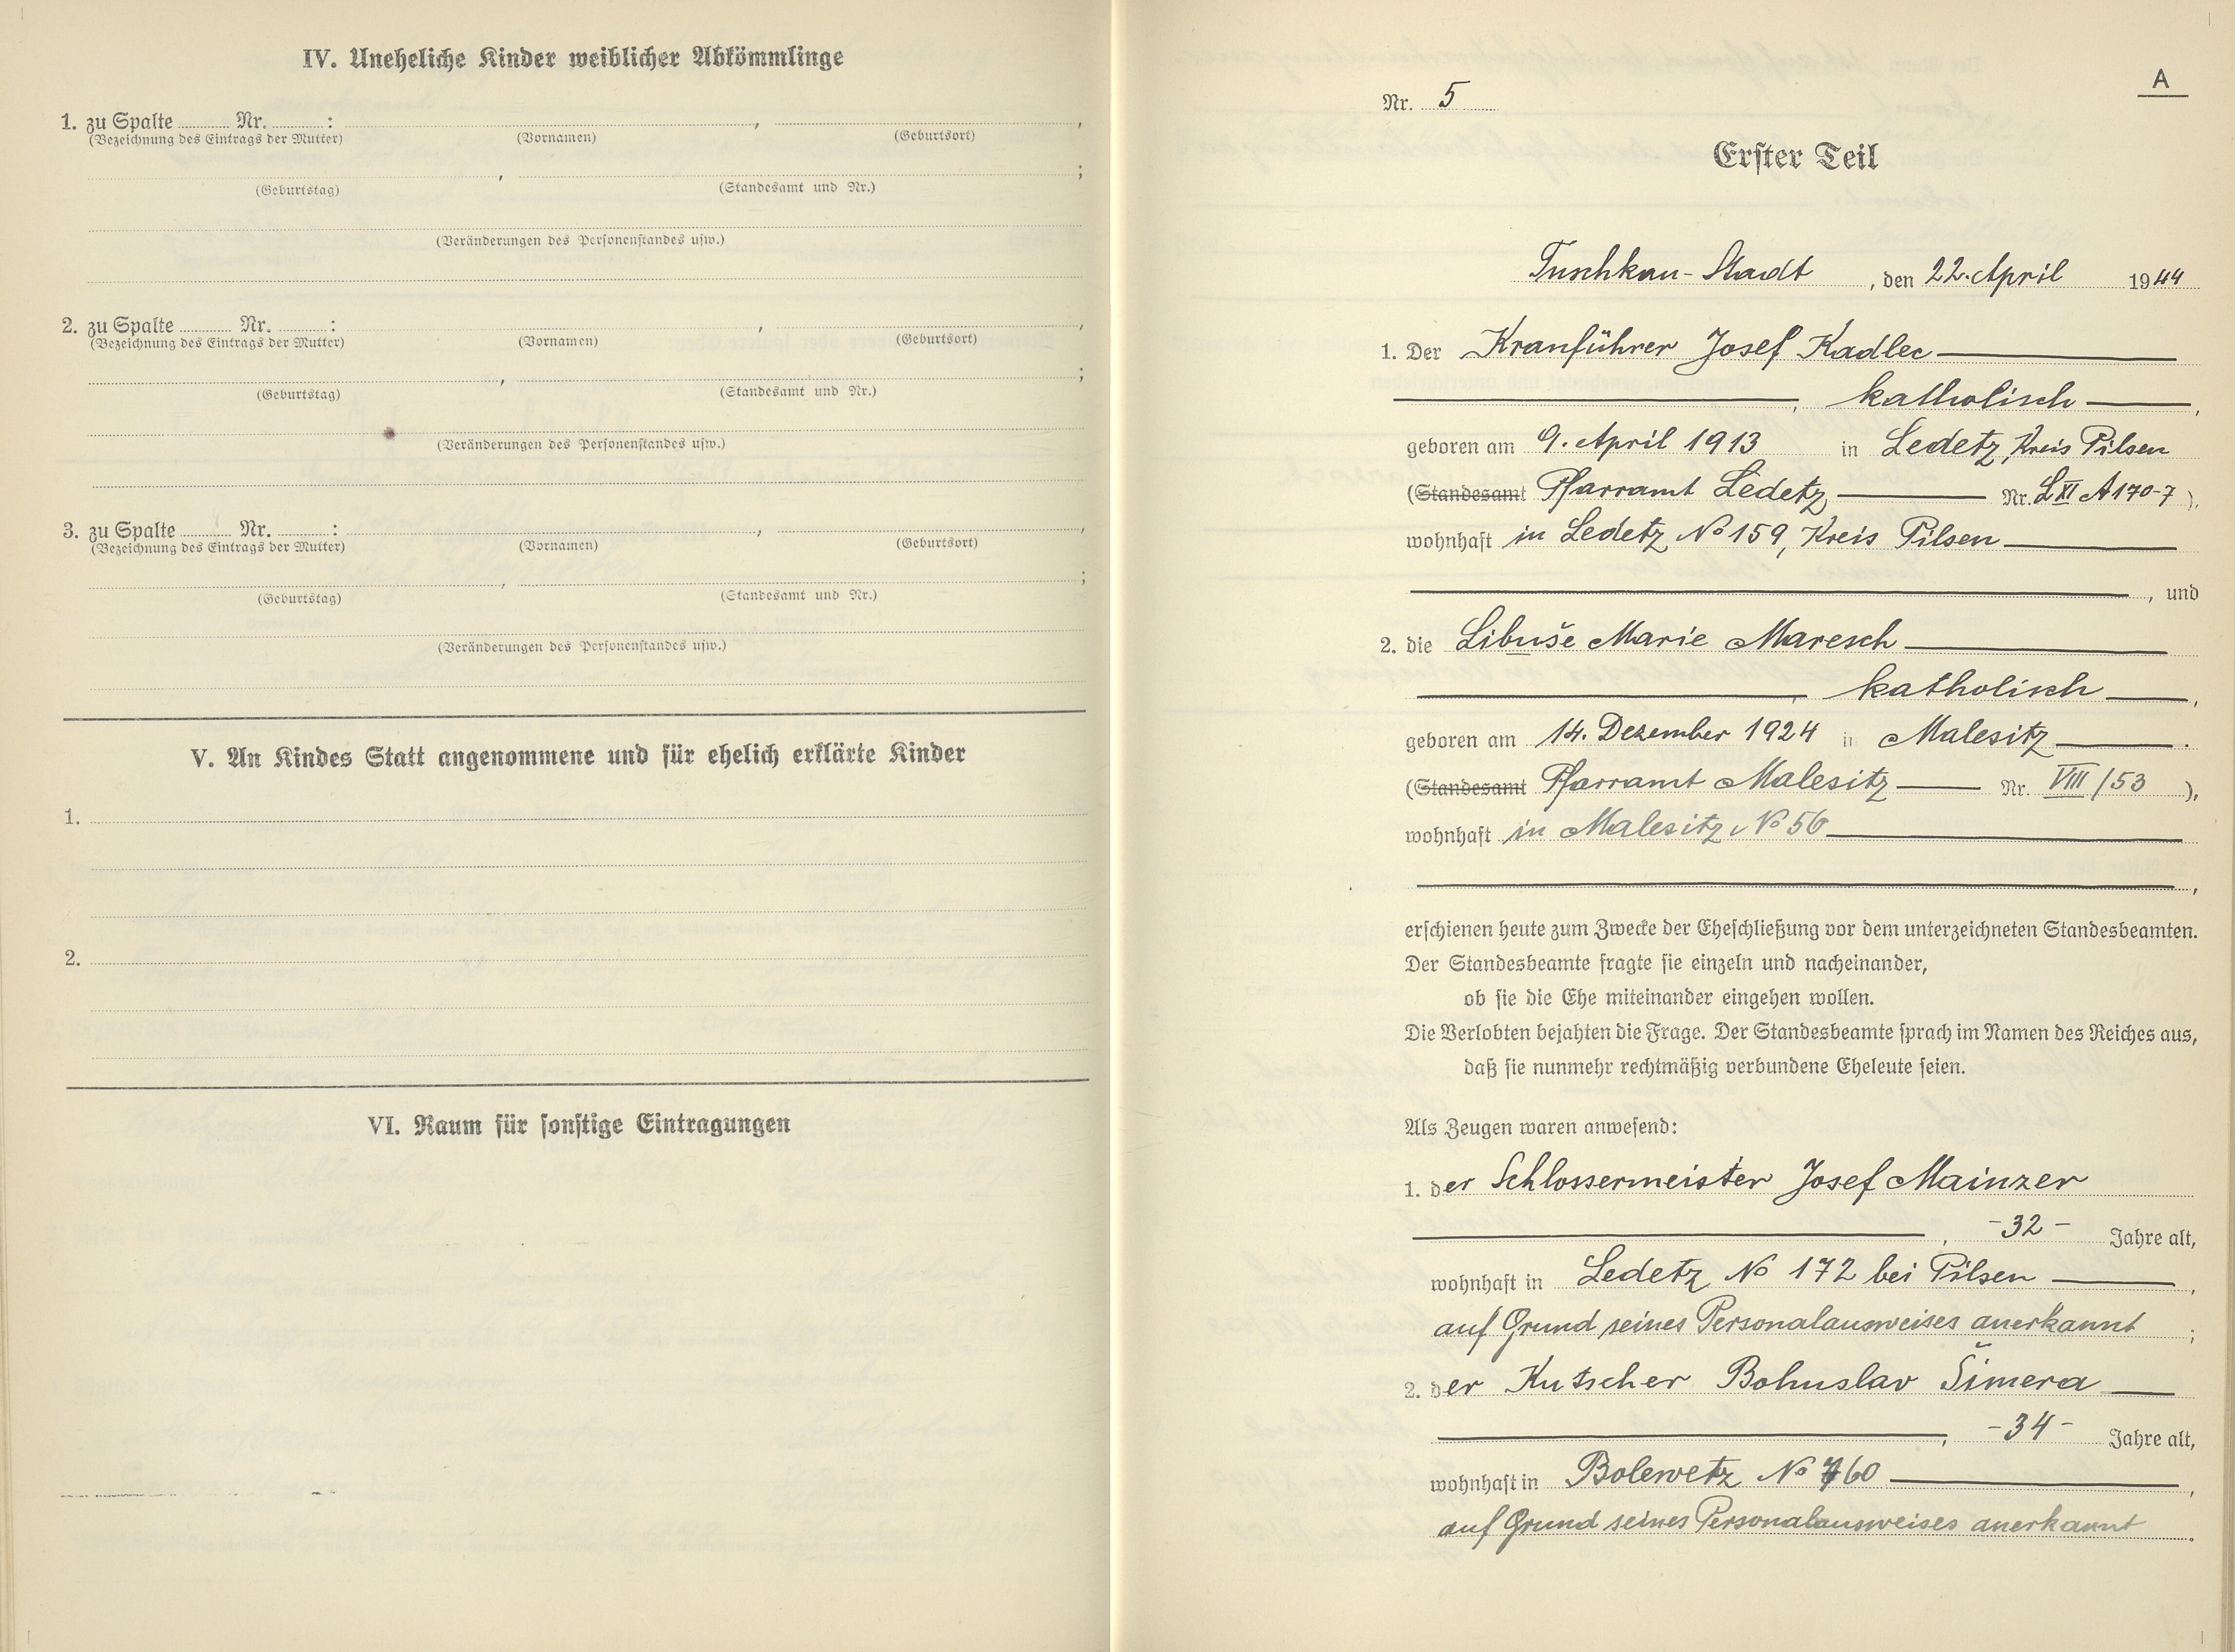 IV. Uneheliche Kinder weiblicher Abkömmlinge
1. zu Spalte Nr. : , ,
(Bezeichnung des Eintrags der Mutter) (Vornamen) (Geburtsort)
, ;
(Geburtstag) (Standesamt und Nr.)
(Veränderungen des Personenstandes usw.)
2. zu Spalte Nr. : , ,
(Bezeichnung des Eintrags der Mutter) (Vornamen) (Geburtsort)
, ;
(Geburtstag) (Standesamt und Nr.)
(Veränderungen des Personenstandes usw.)
3. zu Spalte Nr. : , ,
(Bezeichnung des Eintrags der Mutter) (Vornamen) (Geburtsort)
, ;
(Geburtstag) (Standesamt und Nr.)
(Veränderungen des Personenstandes usw.)
V. An Kindes Statt angenommene und für ehelich erklärte Kinder
1.
2.
VI. Raum für sonstige Eintragungen
A
Nr. 5
Erster Teil
Tuschkau-Stadt, den 22. April 1944
1. Der Kranführer Josef Kadlec
, katholisch ,
geboren am 9. April 1913 in Ledetz, Kreis Pilsen
(Standesamt Pfarramt Ledetz Nr. L XI A 170-7),
wohnhaft in Ledetz No 159, Kreis Pilsen
, und
2. die Libuše Marie Maresch
, katholisch ,
geboren am 14. Dezember 1924 in Malesitz .
(Standesamt Pfarramt Malesitz Nr. VIII/53),
wohnhaft in Malesitz No 56
,
erschienen heute zum Zwecke der Eheschließung vor dem unterzeichneten Standesbeamten.
Der Standesbeamte fragte sie einzeln und nacheinander,
ob sie die Ehe miteinander eingehen wollen.
Die Verlobten bejahten die Frage. Der Standesbeamte sprach im Namen des Reiches aus,
daß sie nunmehr rechtmäßig verbundene Eheleute seien.
Als Zeugen waren anwesend:
1. der Schlossermeister Josef Mainzer
, -32- Jahre alt,
wohnhaft in Ledetz No 172 bei Pilsen ,
auf Grund seines Personalausweises anerkannt ;
2. der Kutscher Bohuslav Šimera
, -34- Jahre alt,
wohnhaft in Bolewetz No 760 ,
auf Grund seines Personalausweises anerkannt .